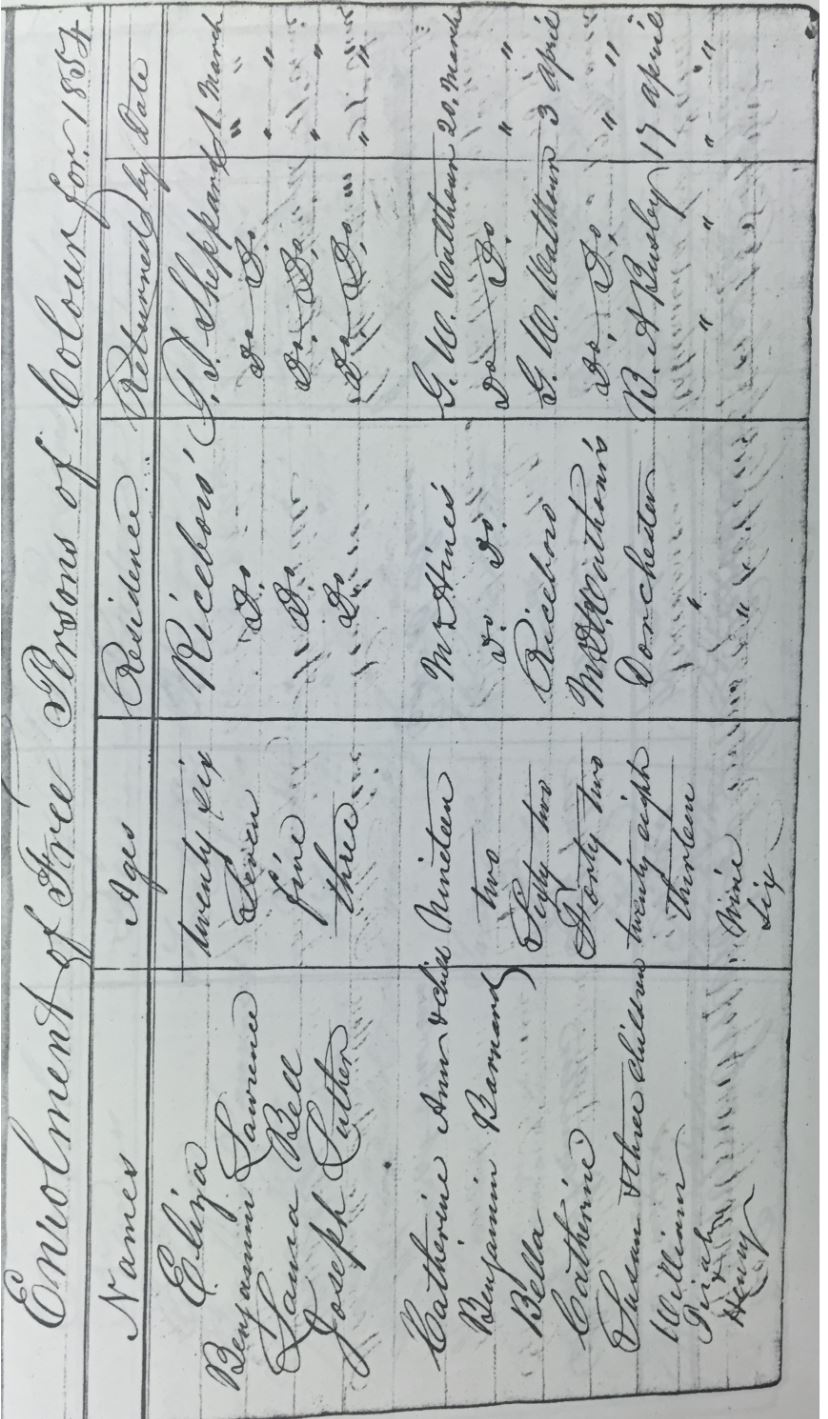 Enrolment of Free Persons of Colour for 1854.
Names Ages Residence Returned by Date
Eliza twenty six Riceboro' G. T. Sheppard 1 March
Benjamin Lawrence Seven Do. Do Do. " "
Laura Bell five Do Do, Do. " "
Joseph Luther three Do Do Do. " "
Catherine Ann & child Nineteen G. W. Walthour 20. March
Benjamin Barnard two Do. Do. Do Do. " "
Bella Sixty two Riceboro G. W. Walthour 3 April
Catherine Forty two Do, Do, " "
Susan & three children twenty eight Dorchester B. A Busby 17 April
William thirteen " " " " "
nine "
Henry Six